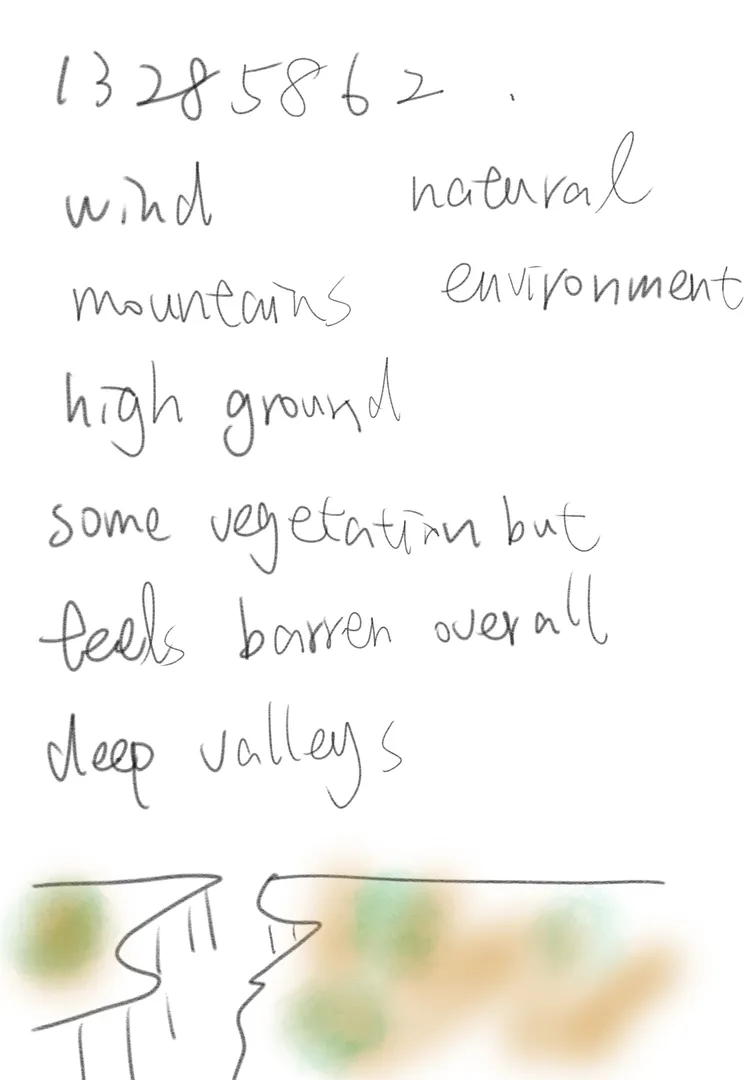 13285862.
wind
natural
mountains
environment
high ground
some vegetation but
feels barren overall
deep valleys